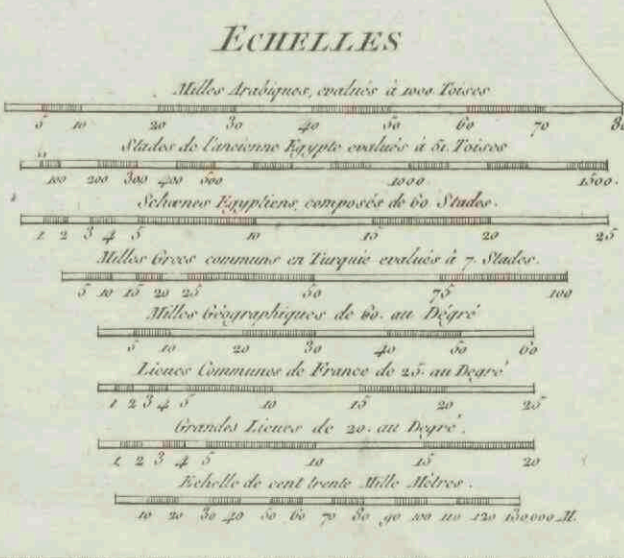 ECHELLES
Milles Arabiques, evalués à 1000 Toises
5 10 20 30 40 50 60 70 80
Stades de l'ancienne Egypte evalués à 51. Toises
100 200 300 400 500 1000 1500.
Schœnes Egyptiens, composés de 60 Stades.
1 2 3 4 5 10 15 20 25
Milles Grecs communs en Turquie evalués à 7. Stades.
5 10 15 20 25 50 75 100
Milles Géographiques de 60. au Dégré
5 10 20 30 40 50 60
Lieues Communes de France de 25. au Degré
1 2 3 4 5 10 15 20 25
Grandes Lieues de 20. au Degré.
1 2 3 4 5 10 15 20
Echelle de cent trente Mille Mètres.
10 20 30 40 50 60 70 80 90 100 110 120 130,000 M.